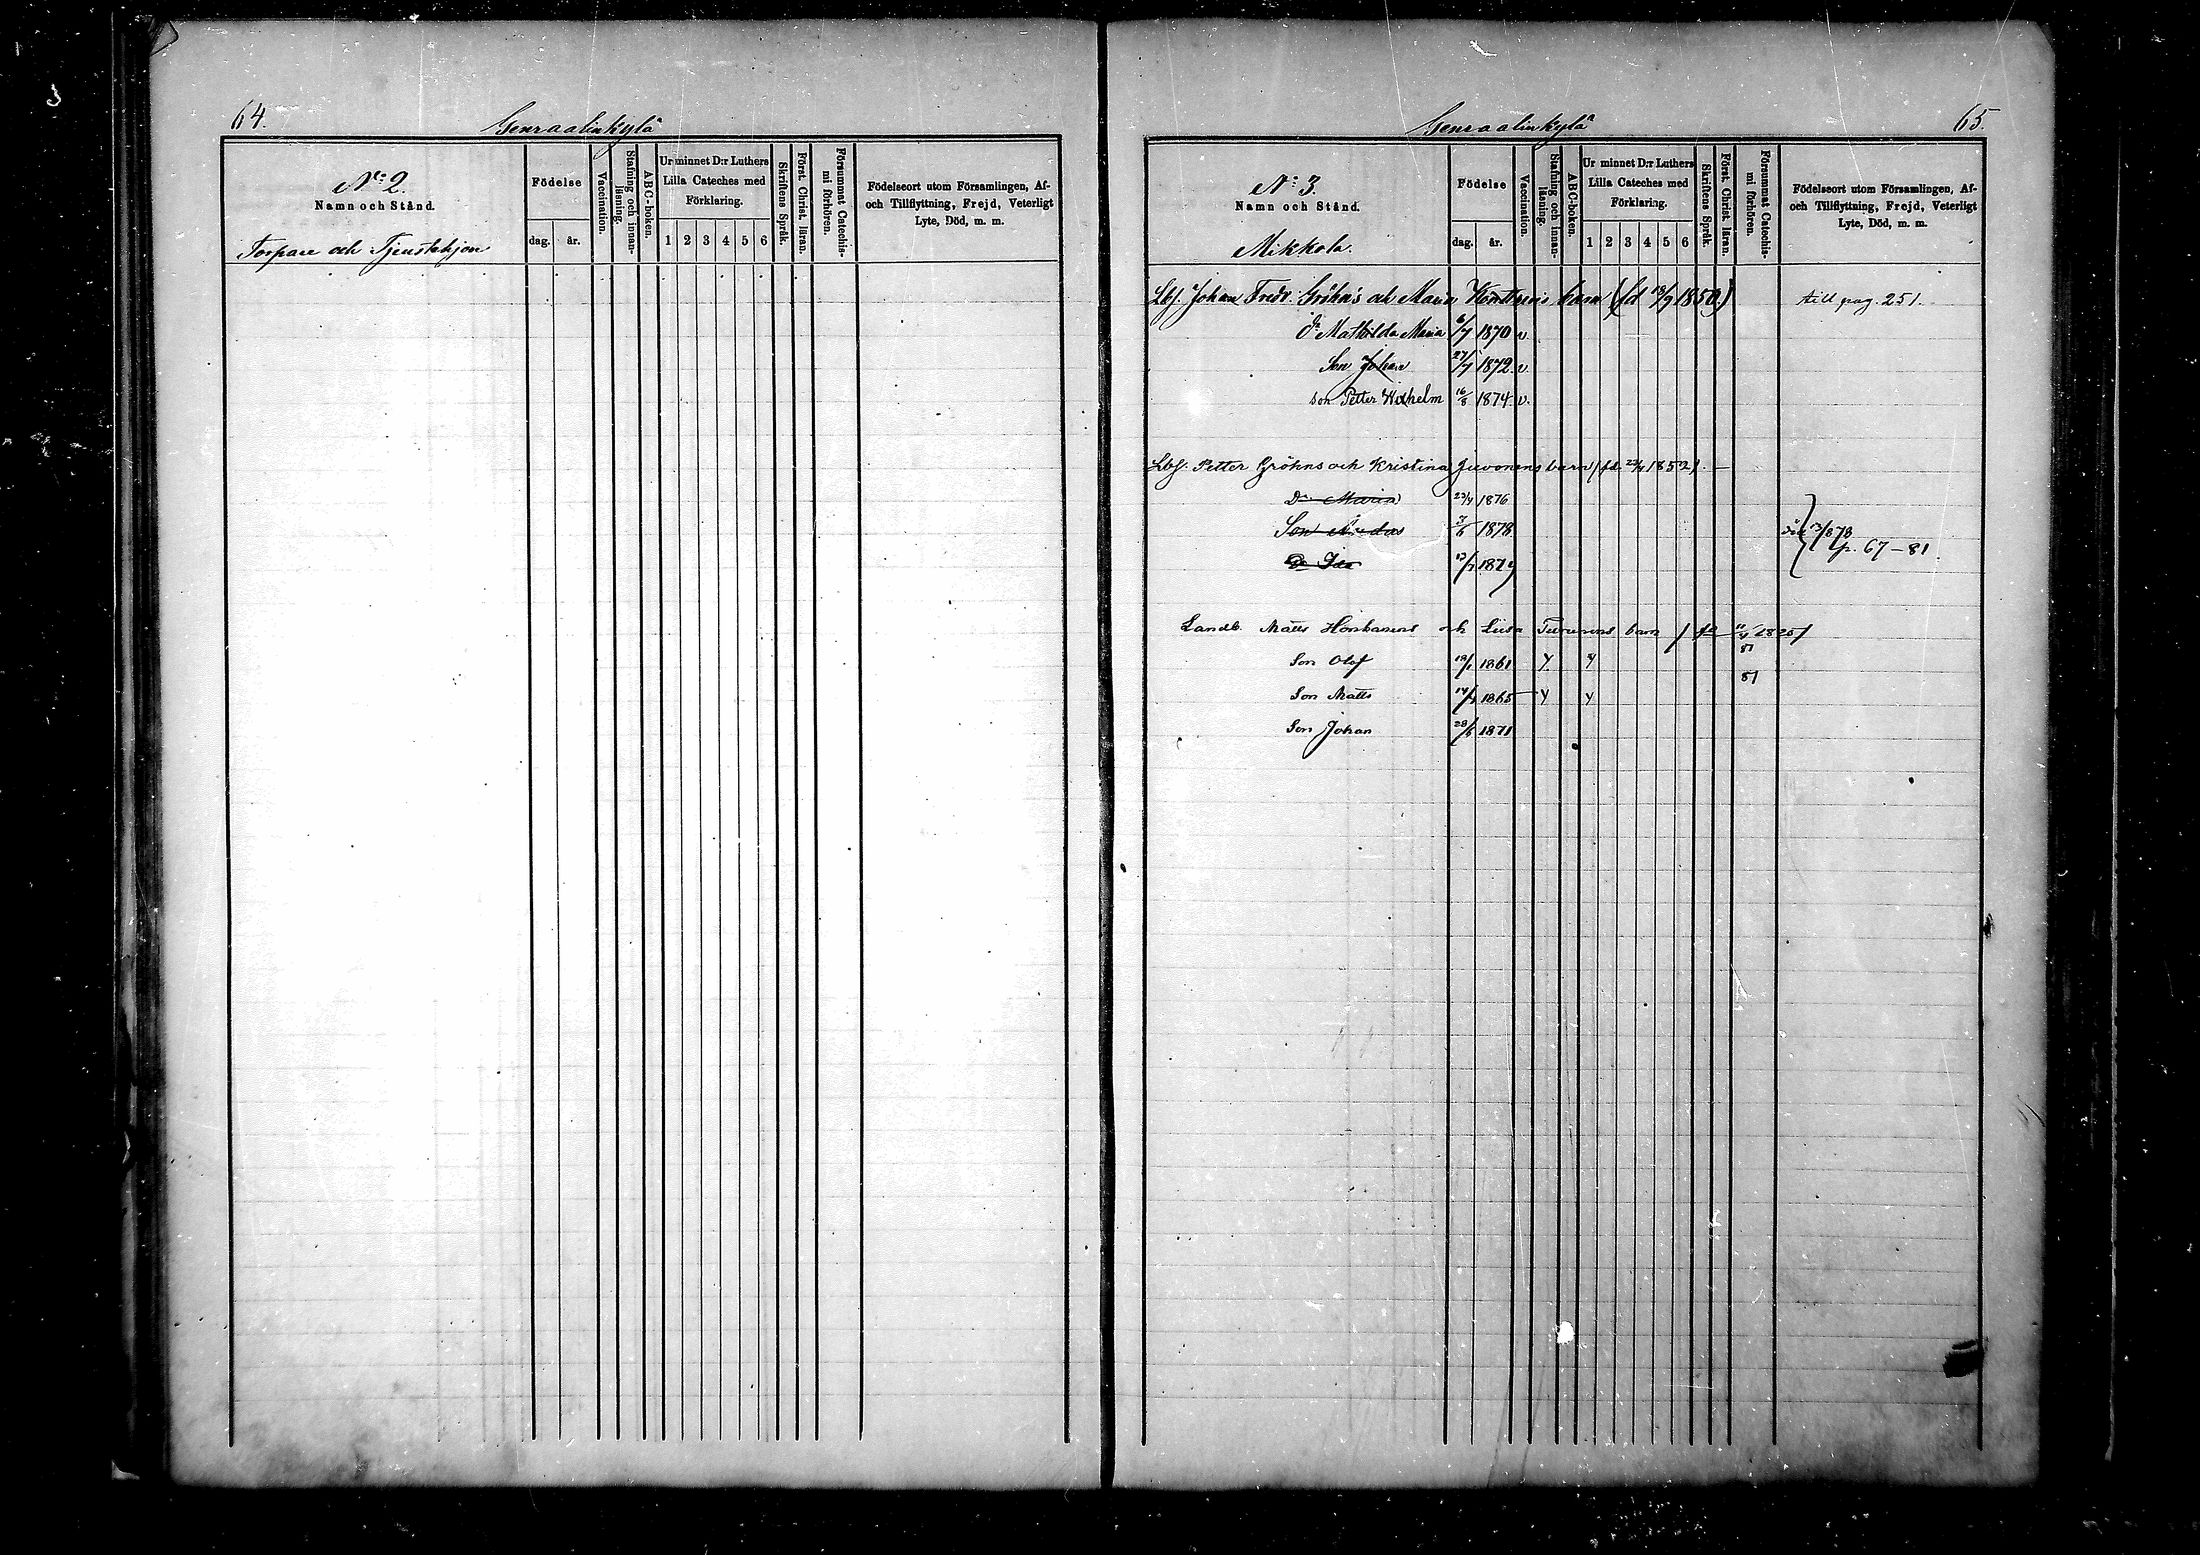 64.
Genraalinkylä
No: 2.
Namn och Stånd.
Torpare och Tjenstehjon
Födelse
dag. år.
Vaccination.
Stafning och innanläsning.
ABC-boken.
Ur minnet D:r Luthers
Lilla Cateches med
Förklaring.
1 2 3 4 5 6
Skriftens Språk.
Först. Christ. läran.
Försummat Catechismi förhören.
Födelseort utom Församlingen, Af-
och Tillflyttning, Frejd, Veterligt
Lyte, Död, m. m.
65.
Genraalinkylä
No: 3.
Namn och Stånd.
Mikkola.
Födelse
dag. år.
Vaccination.
Stafning och innanläsning.
ABC-boken.
Ur minnet D:r Luthers
Lilla Cateches med
Förklaring.
1 2 3 4 5 6
Skriftens Språk.
Först. Christ. läran.
Försummat Catechismi förhören.
Födelseort utom Församlingen, Af-
och Tillflyttning, Frejd, Veterligt
Lyte, Död, m. m.
Lbf. Johan Fredr. Gröhn's och Maria barn (fd 18/9 1850) till pag. 251.
Dr Mathilda Maria 6/7 1870 v.
Son Johan 27/7 1872 v.
Son Petter Wilhelm 16/8 1874 v.
Lbf. Petter Gröhns och Kristina Juvonens barn (fd 1852). —
Dr Maria 23/4 1876
Son 1878 död 13/8 78
p. 67-81
Dr Ida 1879
Landb. Matts och Liisa barn / fd 1825/
81
Son Olof 1861 y y
81
Son Matts 1865 y y
Son Johan 1871